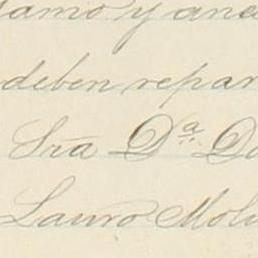 tamo y ane
deben repar
Sra Dª Do
Lauro Moli